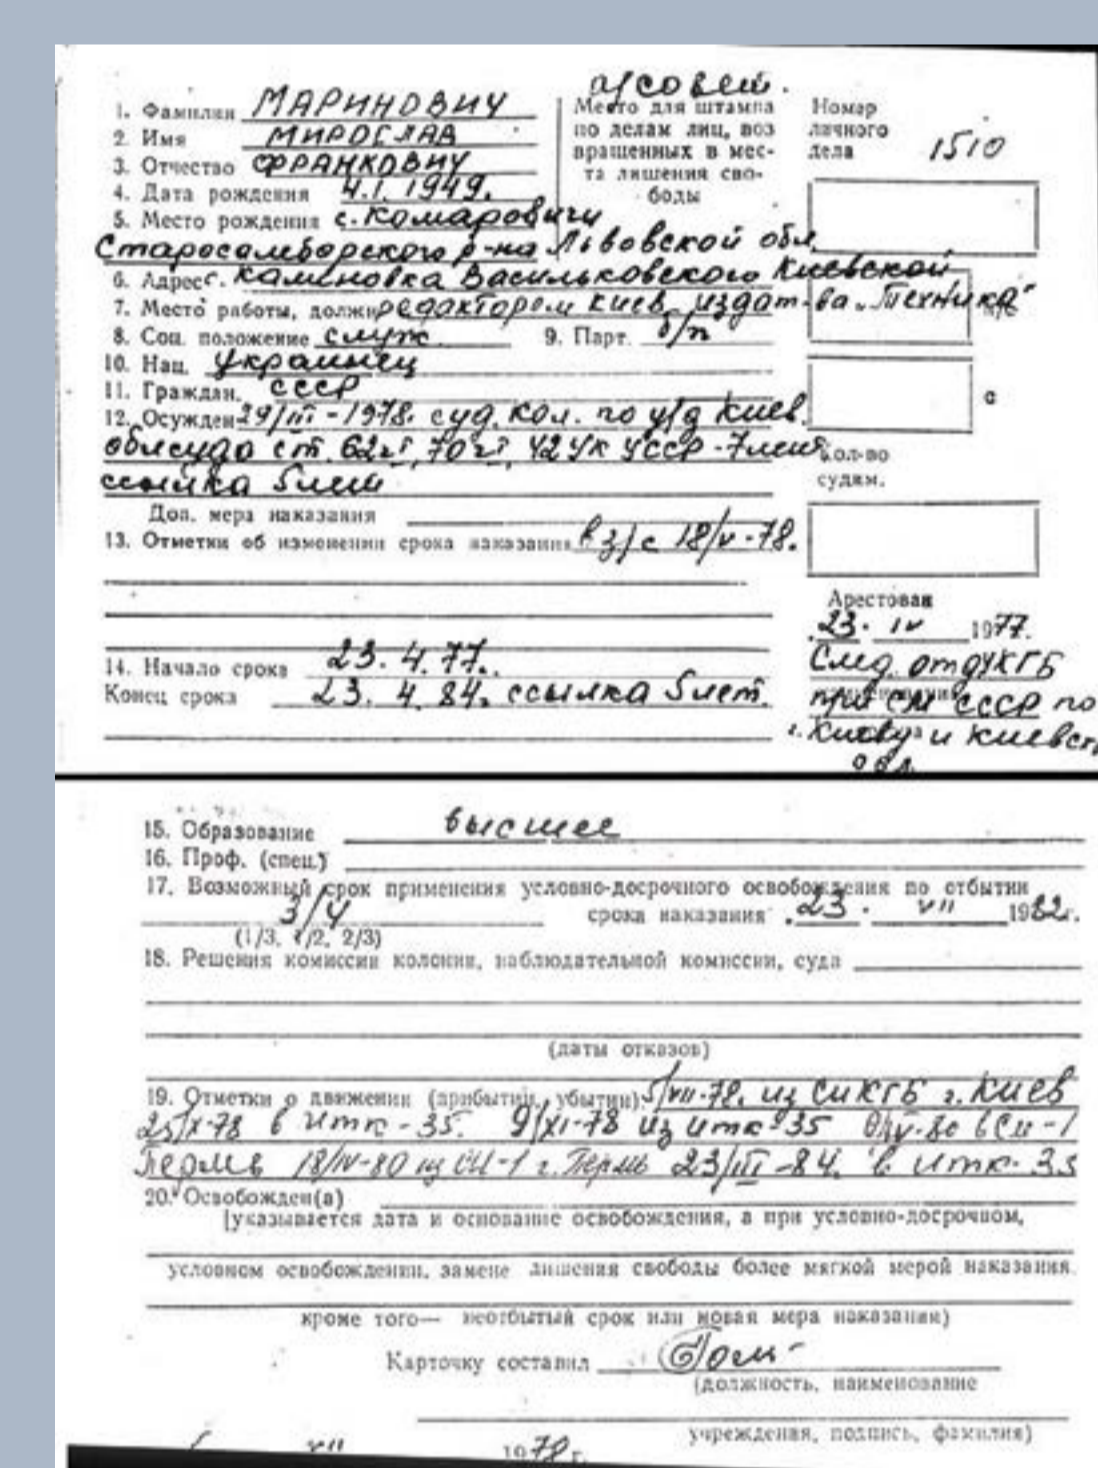 а/совет.
1. Фамилия МАРИНОВИЧ
2. Имя МИРОСЛАВ
3. Отчество ФРАНКОВИЧ
4. Дата рождения 4.I.1949.
5. Место рождения с. Комаровичи
Старосамборского р-на Львовской обл.
6. Адрес с. Калиновка Васильковского Киевской
7. Место работы, должн редактором киев. издат-ва „Техника"
8. Соц. положение служ. 9. Парт. б/п
10. Нац. украинец
11. Граждан. СССР
12. Осужден 29/III-1978. суд. кол. по у/д Киев.
облсуда ст. 62 ч I, 70 ч I, 42 УК УССР - 7 лет
ссылка 5 лет
Доп. мера наказания
13. Отметки об изменении срока наказания в з/с 18/V-78.
14. Начало срока 23.4.77.
Конец срока 23.4.84. ссылка 5 лет.
Место для штампа
по делам лиц, воз
вращенных в мес-
та лишения сво-
боды
Номер
личного
дела 1510
с
Кол-во
судим.
Арестован
23. IV 1977.
След. отд УКГБ
при СМ СССР по
г. Киеву и Киевск
обл.
15. Образование высшее
16. Проф. (спец.)
17. Возможный срок применения условно-досрочного освобождения по отбытии
3/4 срока наказания 23. VII 1982г.
(1/3, 1/2, 2/3)
18. Решения комиссии колонии, наблюдательной комиссии, суда
(даты отказов)
19. Отметки о движении (прибытии, убытии) 5/VII-78. из СИ КГБ г. Киев
25/X-78 в ИТК-35. 9/XI-78 из ИТК-35 в СИ-1
Пермь 18/IV-80 из СИ-1 г. Пермь 23/III-84. в ИТК-35
20. Освобожден(а)
[указывается дата и основание освобождения, а при условно-досрочном,
условном освобождении, замене лишения свободы более мягкой мерой наказания
кроме того— неотбытый срок или новая мера наказания)
Карточку составил
(должность, наименование
учреждения, подпись, фамилия)
VII 1978 г.